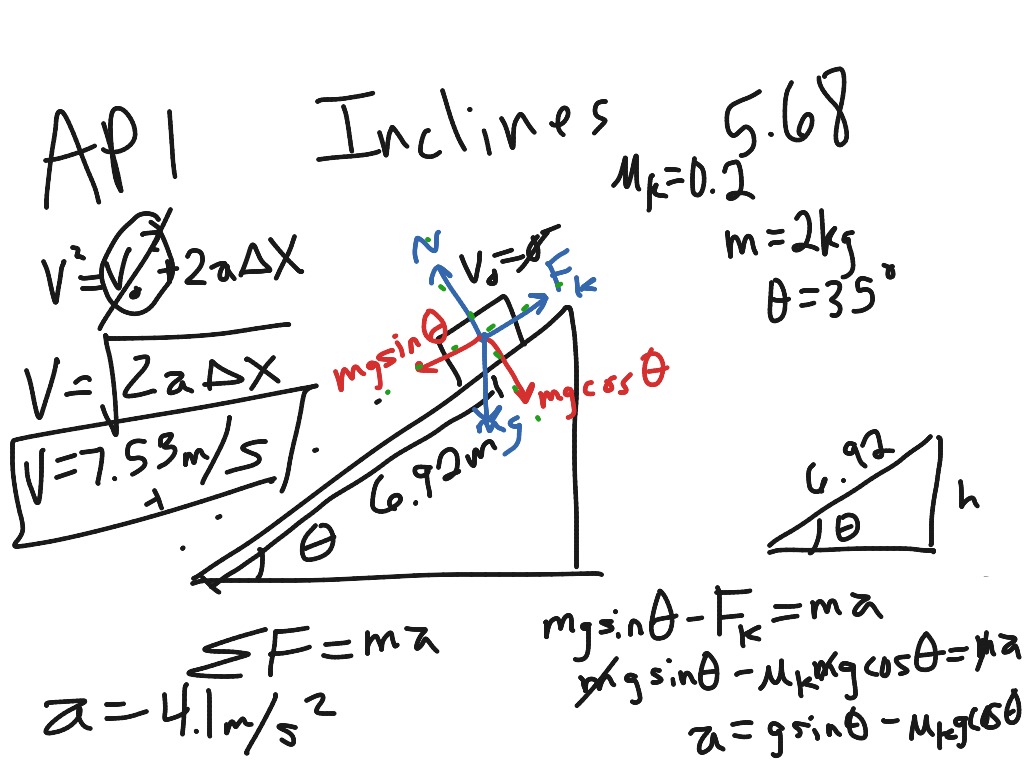 AP1 Inclines 5.68
μk=0.2
m=2kg
θ=35°
V²=V₀²+2aΔX
V=√2aΔX
V=7.53m/s
N
V₀=0
Fk
mgsinθ
mgcosθ
mg
6.92m
θ
6.92
h
θ
ΣF=ma
a=4.1m/s²
mgsinθ-Fk=ma
mgsinθ-μkmgcosθ=ma
a=gsinθ-μkgcosθ